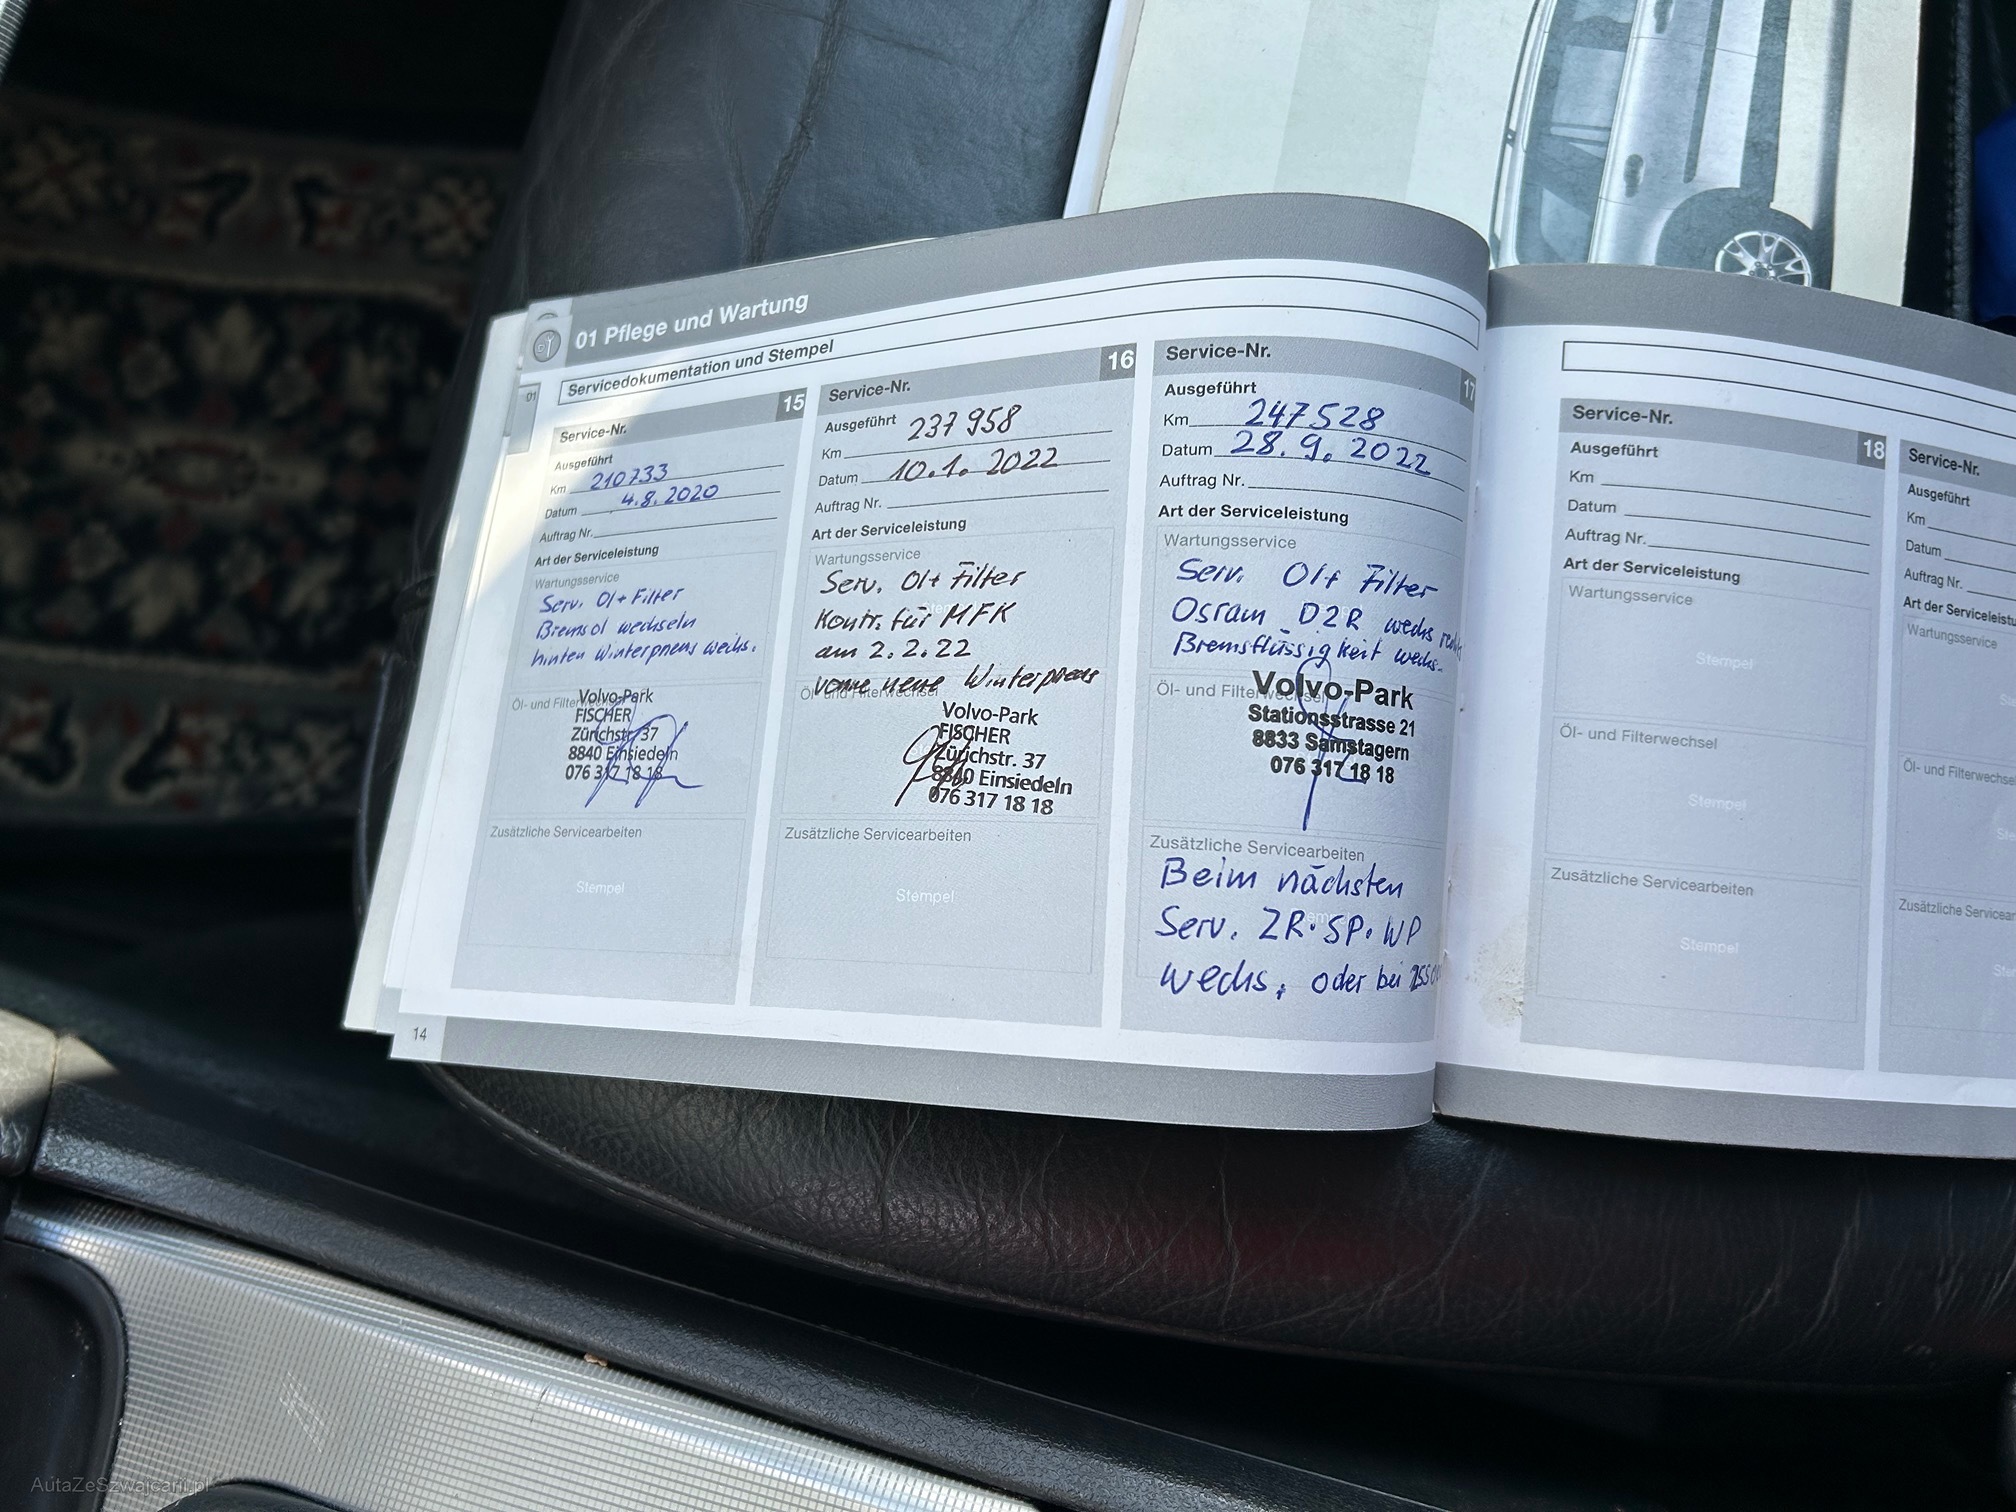 01 Pflege und Wartung
Servicedokumentation und Stempel
01
Service-Nr. 15
Ausgeführt
Km 210733
Datum 4.8.2020
Auftrag Nr.
Art der Serviceleistung
Wartungsservice
Serv. Öl+Filter
Bremsöl wechseln
hinten Winterpneus wechs.
Öl- und Filterwechsel
Volvo-Park
FISCHER
Zürichstr. 37
8840 Einsiedeln
076 317 18 18
Zusätzliche Servicearbeiten
Stempel
Service-Nr. 16
Ausgeführt
Km 237958
Datum 10.1.2022
Auftrag Nr.
Art der Serviceleistung
Wartungsservice
Serv. Öl+ Filter
Kontr. für MFK
am 2.2.22
vorne neue Winterpneus
Öl- und Filterwechsel
Volvo-Park
FISCHER
Zürichstr. 37
8840 Einsiedeln
076 317 18 18
Zusätzliche Servicearbeiten
Stempel
Service-Nr. 17
Ausgeführt
Km 247528
Datum 28.9.2022
Auftrag Nr.
Art der Serviceleistung
Wartungsservice
Serv. Öl+ Filter
Osram D2R wechs
Bremsflüssigkeit wechs.
Öl- und Filterwechsel
Volvo-Park
Stationsstrasse 21
8833 Samstagern
076 317 18 18
Zusätzliche Servicearbeiten
Beim nächsten
Serv. ZR.SP.WP
wechs, oder bei
14
Service-Nr. 18
Ausgeführt
Km
Datum
Auftrag Nr.
Art der Serviceleistung
Wartungsservice
Stempel
Öl- und Filterwechsel
Stempel
Zusätzliche Servicearbeiten
Stempel
Service-Nr.
Ausgeführt
Km
Datum
Auftrag Nr.
Art der
Wartungsservice
Öl- und
Zusätzliche
AutaZeSzwajcarii.pl